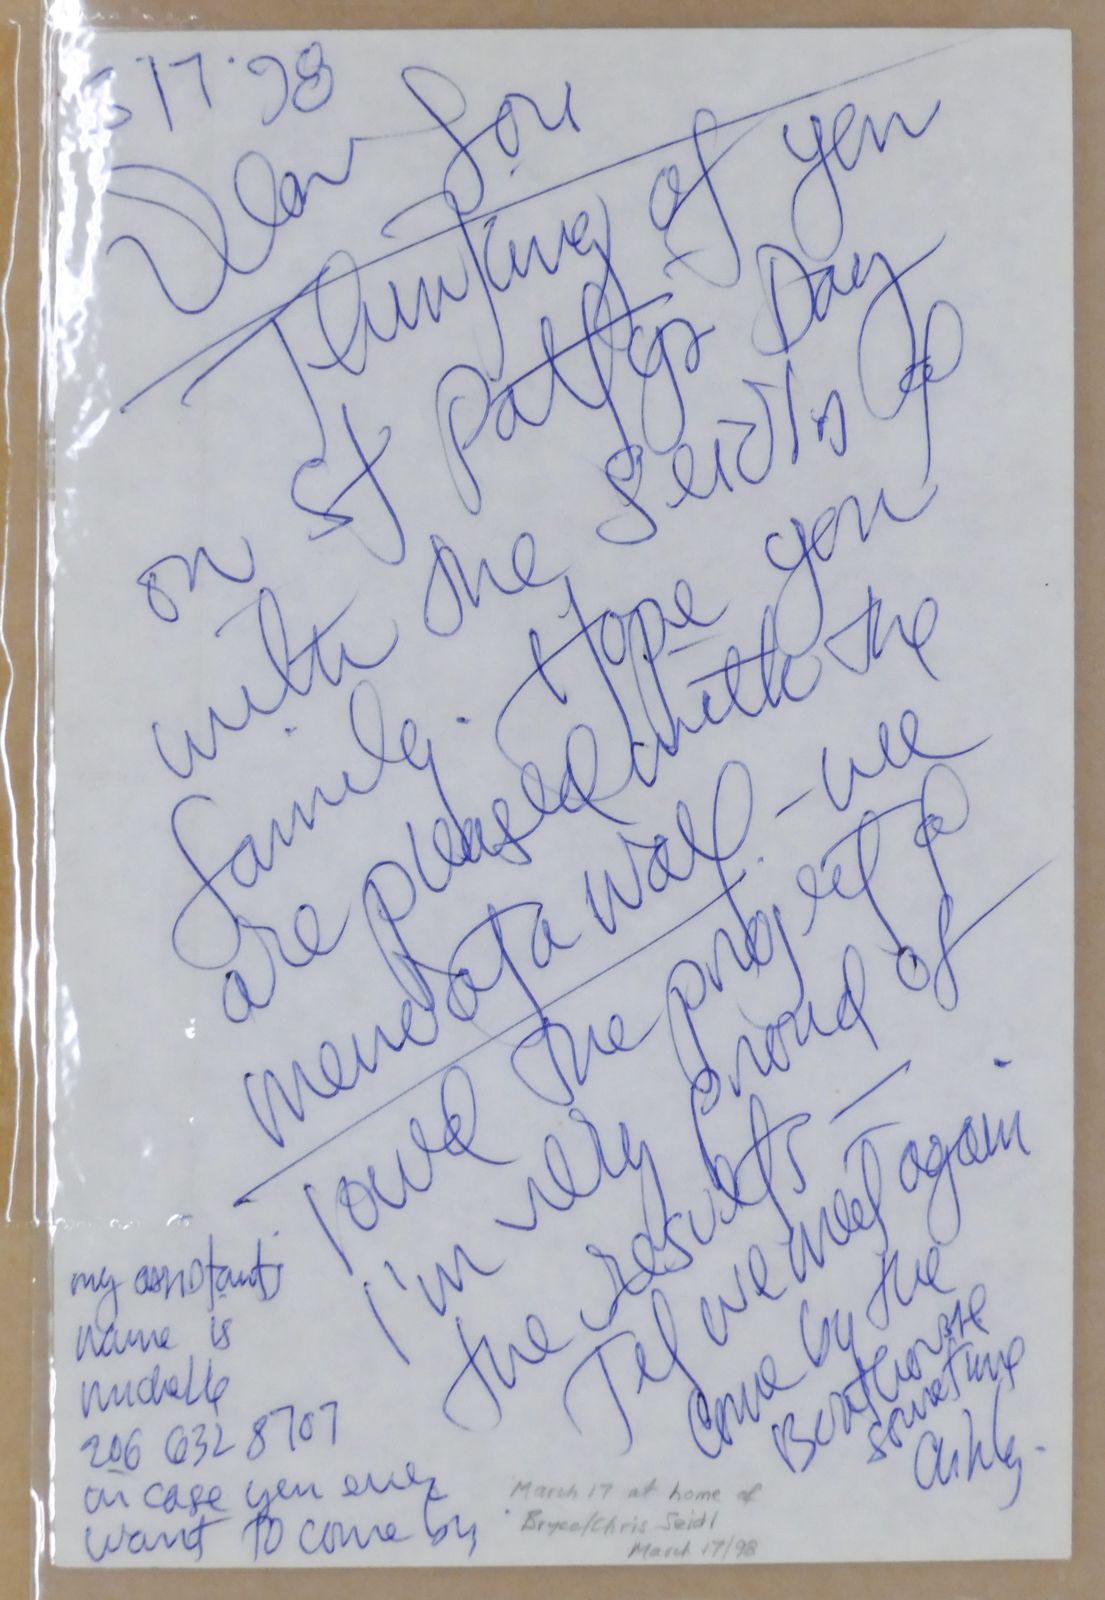 3 17 · 98
Dear Lori
Thinking of you
on St Patty's Day
with the Seidls &
family. Hope you
are pleased with the
mendota wall - we
loved the project &
I'm very proud of
the results —
Til we meet again.
Come by the
Boathouse
sometime
my assistants
name is
Michelle
206 632 8707
in case you ever
want to come by.
March 17 at home of
Bryce/Chris Seidl
March 17/98